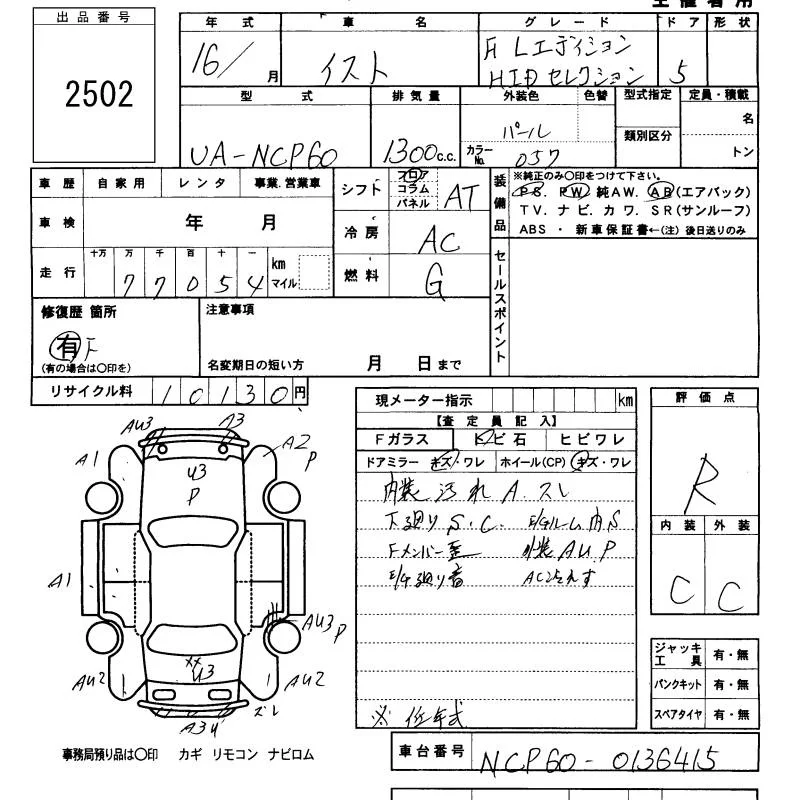 主催者用
出品番号
2502
年式 車名 グレード ドア 形状
16/ 月 イスト F Lエディション
HIDセレクション 5
型式 排気量 外装色 色替 型式指定 定員・積載
UA-NCP60 1300c.c. パール 名
カラーNo. 057 類別区分 トン
車歴 自家用 レンタ 事業.営業車
シフト フロア コラム パネル AT
装備品 ※純正のみ〇印をつけて下さい。
PS. PW 純AW. AB(エアバック)
TV. ナビ. カワ. SR(サンルーフ)
ABS ・ 新車保証書←(注) 後日送りのみ
車検 年 月
冷房 AC
走行 十万 万 千 百 十 一 km マイル
77054
燃料 G
セールスポイント
修復歴 箇所
有 F
(有の場合は〇印を)
注意事項
名変期日の短い方 月 日まで
リサイクル料 10130円
現メーター指示 km
【査定員記入】
Fガラス トビ石 ヒビワレ
ドアミラー キズ・ワレ ホイール(CP) キズ・ワレ
内装汚れ A.スレ
下廻りS.C. E/Gルーム内S
Fメンバー歪 外装AU.P
E/G廻り音
※ 低年式
評価点
R
内装 外装
C C
AU3 A3
A1 A2
P
U3
P
A1
AU3
P
XX
U3
AU2 AU2
ズレ
A3U
ジャッキ工具 有・無
パンクキット 有・無
スペアタイヤ 有・無
事務局預り品は〇印 カギ リモコン ナビロム
車台番号 NCP60-0136415